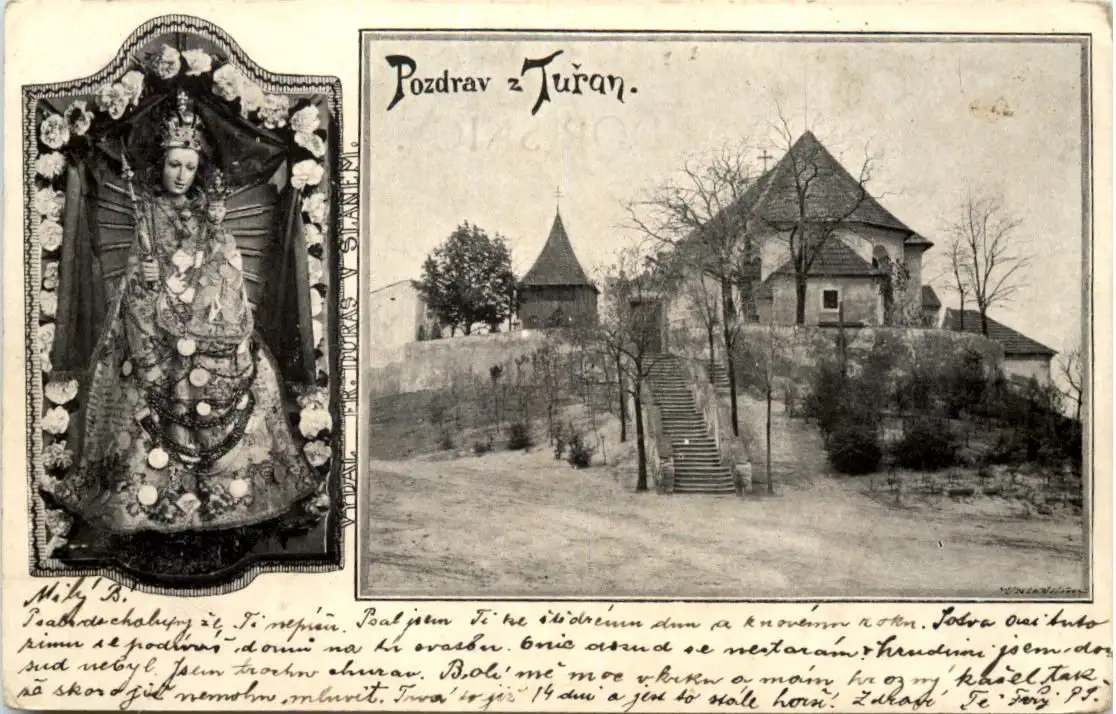 Pozdrav z Tuřan.
VYDAL FR. TURAS V SLANÉM.
Milý B!
že Ti nepíšu. Psal jsem Ti ke štědrému dnu a k novému roku. Sotva asi tuto
zimu se podíváš domů na tu svatbu. O nic dosud se nestarám v Chrudimi jsem do-
sud nebyl. Jsem trochu churav. Bolí mě moc v krku a mám hrozný kašel tak
že skoro již nemohu mluvit. Trvá to již 14 dní a jest to stále horší. Zdraví Tě